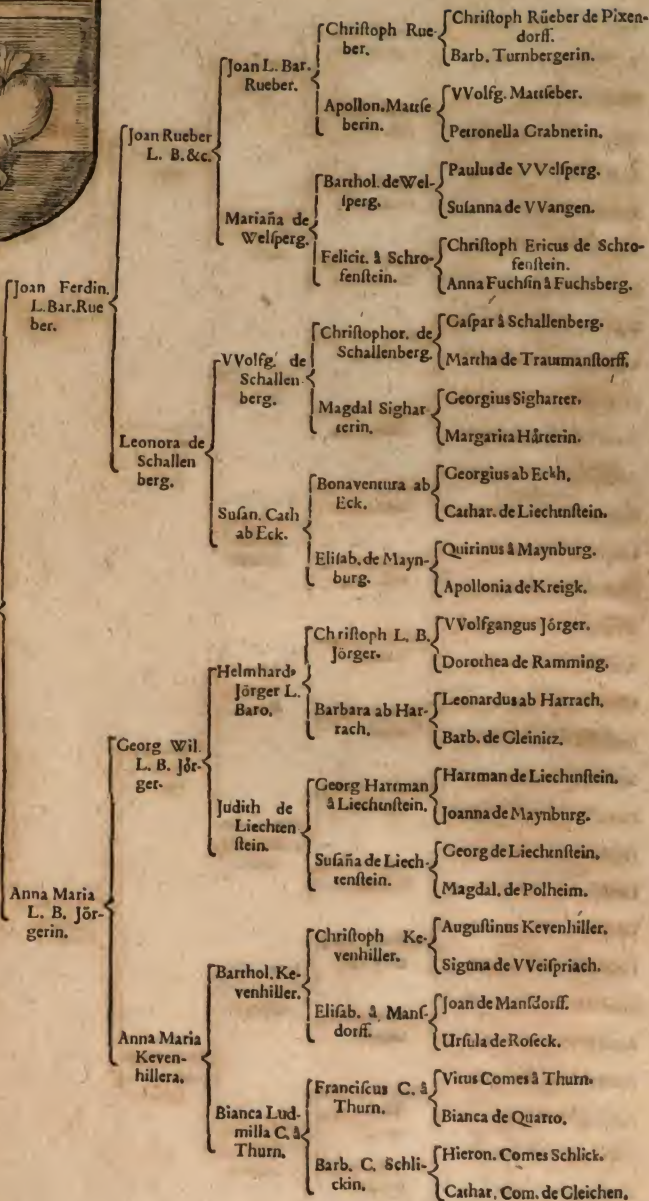 Joan Ferdin.
L. Bar. Rue
ber.
Anna Maria
L. B. Jör-
gerin.
Joan Rueber
L. B. &c.
Leonora de
Schallen
berg.
Georg Wil.
L. B. Jör-
ger.
Anna Maria
Keven-
hillera.
Joan L. Bar.
Rueber.
Mariãna de
Welſperg.
VVolfg. de
Schallen
berg.
Suſan. Cath
ab Eck.
Helmhard
Jörger L.
Baro.
Judith de
Liechten
ſtein.
Barthol. Ke-
venhiller.
Bianca Lud-
milla C. â
Thurn.
Chriſtoph Rue-
ber.
Apollon. Mattſe
berin.
Barthol. de Wel-
ſperg.
Felicit. â Schro-
fenſtein.
Chriſtophor. de
Schallenberg.
Magdal Sighar
terin.
Bonaventura ab
Eck.
Eliſab. de Mayn-
burg.
Chriſtoph L. B.
Jörger.
Barbara ab Har-
rach.
Georg Hartman
â Liechtnſtein.
Suſãna de Liech-
tenſtein.
Chriſtoph Ke-
venhiller.
Eliſab. â Manſ-
dorff.
Franciſcus C. â
Thurn.
Barb. C. Schli-
ckin.
Chriſtoph Rüeber de Pixen-
dorff.
Barb. Turnbergerin.
VVolfg. Mattſeber.
Petronella Grabnerin.
Paulus de VVelſperg.
Suſanna de VVangen.
Chriſtoph Ericus de Schro-
fenſtein.
Anna Fuchſin â Fuchsberg.
Gaſpar â Schallenberg.
Martha de Trautmanſtorff.
Georgius Sigharter.
Margarita Härterin.
Georgius ab Eckh.
Cathar. de Liechtnſtein.
Quirinus â Maynburg.
Apollonia de Kreigk.
VVolfgangus Jörger.
Dorothea de Ramming.
Leonardus ab Harrach.
Barb. de Gleinitz.
Hartman de Liechtnſtein.
Joanna de Maynburg.
Georg de Liechtnſtein.
Magdal. de Polheim.
Auguſtinus Kevenhiller.
Siguna de VVeiſpriach.
Joan de Manſdorff.
Urſula de Roſeck.
Vitus Comes â Thurn.
Bianca de Quarto.
Hieron. Comes Schlick.
Cathar. Com. de Gleichen.